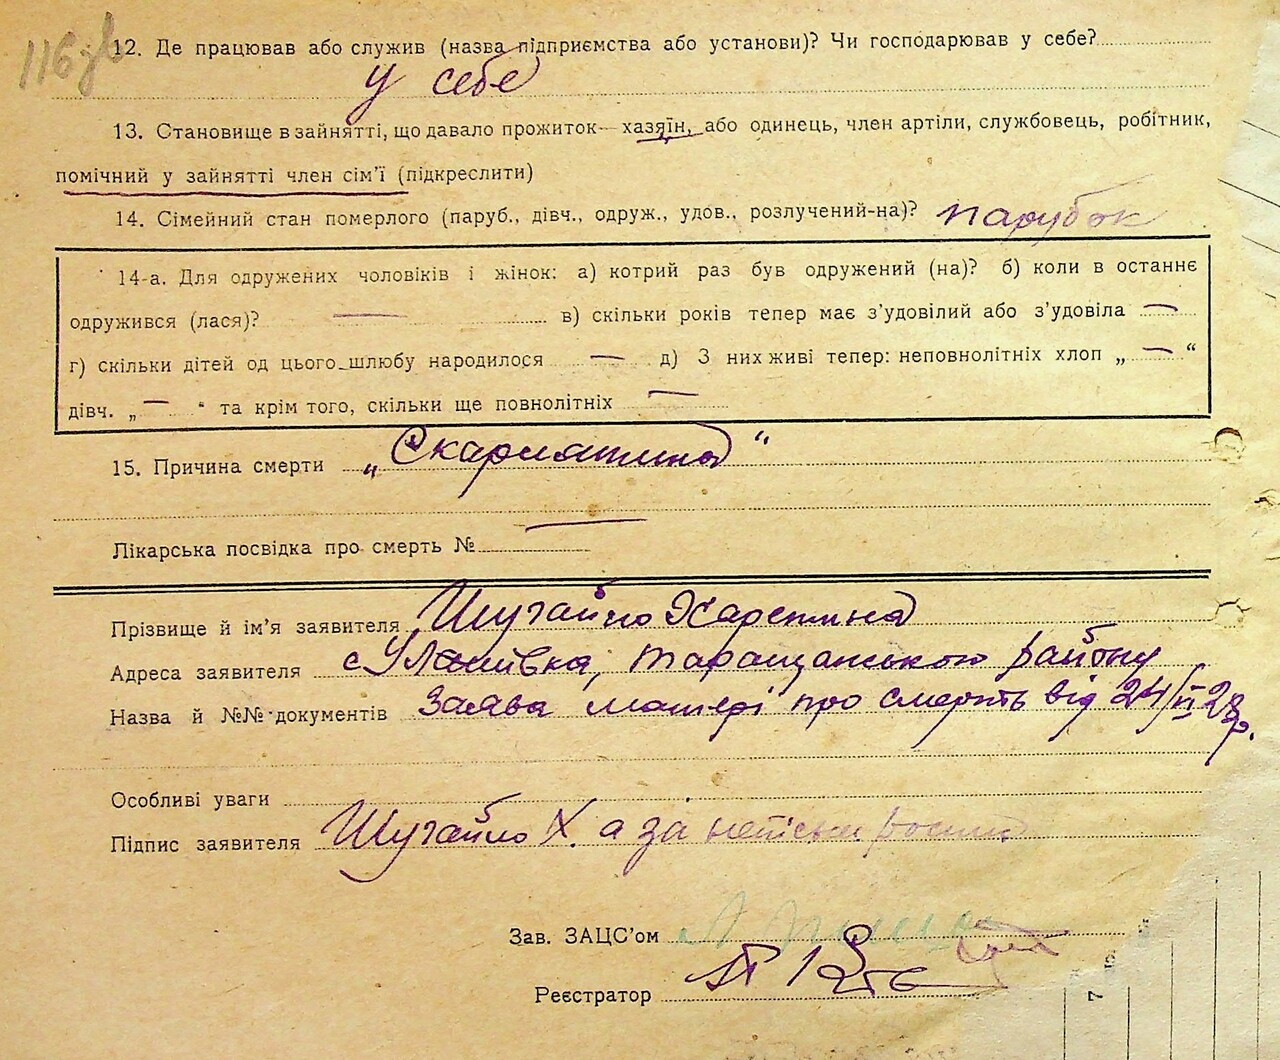 116 зв
12. Де працював або служив (назва підприємства або установи)? Чи господарював у себе?
У себе
13. Становище в зайнятті, що давало прожиток—хазяїн, або одинець, член артіли, службовець, робітник,
помічний у зайнятті член сім'ї (підкреслити)
14. Сімейний стан померлого (паруб., дівч., одруж., удов., розлучений-на)? парубок
14-а. Для одружених чоловіків і жінок: а) котрий раз був одружений (на)? б) коли в останнє
одружився (лася)? — в) скільки років тепер має з'удовілий або з'удовіла —
г) скільки дітей од цього шлюбу народилося — д) З них живі тепер: неповнолітніх хлоп „ — “
дівч. „ — “ та крім того, скільки ще повнолітніх —
15. Причина смерти „Скарлятина“
Лікарська посвідка про смерть № —
Прізвище й ім'я заявителя Шугайло Харетина
Адреса заявителя с Улашівка, Таращанського району
Назва й №№ документів Заява матері про смерть від 24/VI 28 р.
Особливі уваги
Підпис заявителя Шугайло Х. а за
Зав. ЗАЦС'ом
Реєстратор
7